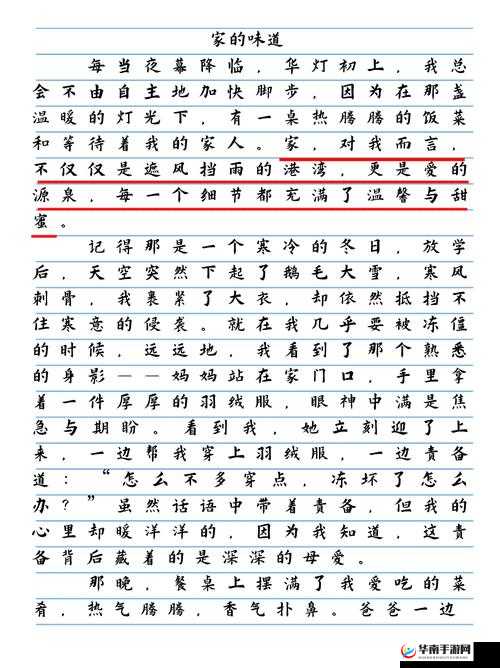 家的味道
每当夜幕降临，华灯初上，我总
会不由自主地加快脚步，因为在那盏
温暖的灯光下，有一桌热腾腾的饭菜
和等待着我的家人。家，对我而言，
不仅仅是遮风挡雨的港湾，更是爱的
源泉，每一个细节都充满了温馨与甜
蜜。
记得那是一个寒冷的冬日，放学
后，天空突然下起了鹅毛大雪，寒风
刺骨，我裹紧了大衣，却依然抵挡不
住寒意的侵袭。就在我几乎要被冻僵
的时候，远远地，我看到了那个熟悉
的身影——妈妈站在家门口，手里拿
着一件厚厚的羽绒服，眼神中满是焦
急与期盼。看到我，她立刻迎了上
来，一边帮我穿上羽绒服，一边责备
道：“怎么不多穿点，冻坏了怎么
办？”虽然话语中带着责备，但我的
心里却暖洋洋的，因为我知道，这责
备背后藏着的是深深的母爱。
那晚，餐桌上摆满了我爱吃的菜
肴，热气腾腾，香气扑鼻。爸爸一边
华南手游网